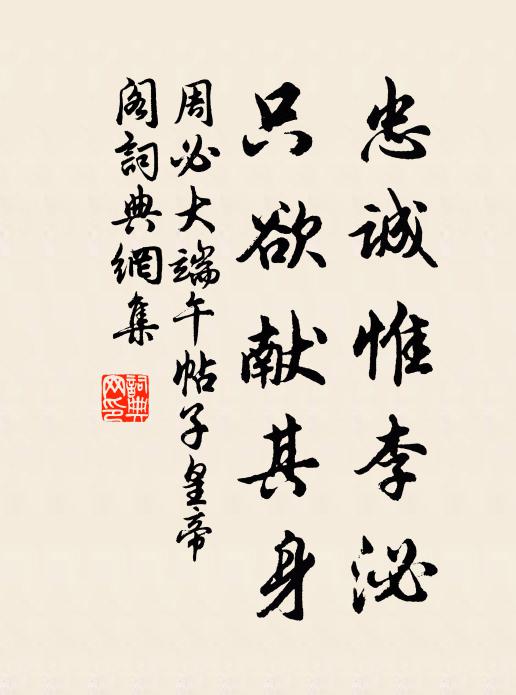 忠诚惟李泌
只欲献其身
周必大端午帖子皇帝
阁詞典網集
詞典
网印